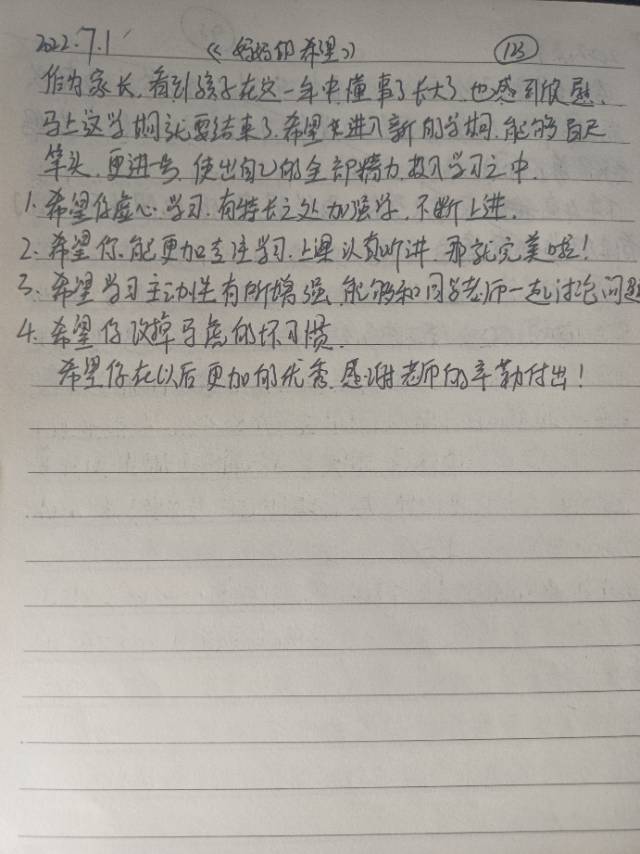 2022.7.1 《妈妈的希望》 123
作为家长,看到孩子在这一年中懂事了长大了,也感到欣慰,
马上这学期就要结束了,希望在进入新的学期,能够百尺
竿头,更进一步,使出自己的全部精力,投入学习之中.
1.希望你虚心学习,有特长之处加强学,不断上进.
2.希望你能更加专注学习,上课认真听讲,那就完美啦!
3.希望学习主动性有所增强,能够和同学老师一起讨论问题
4.希望你改掉马虎的坏习惯.
希望你在以后更加的优秀,感谢老师的辛勤付出!